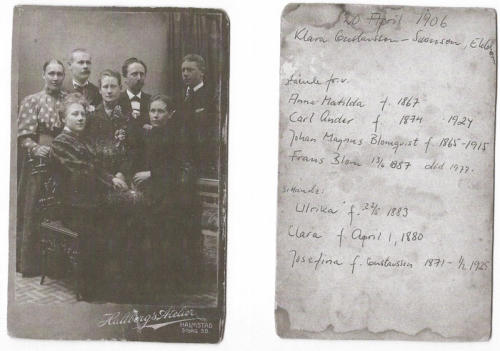 Hallbergs Atelier
HALMSTAD
STORG. 38.
20 April 1906
Klara Gustavsson - Svenson,
stående fr.v.
Anna Matilda f. 1867
Carl Ander f. 1874 - 1924
Johan Magnus Blomquist f 1865-1915
Frans Blom 13/6 1887 död 1977.
sittande:
Ulrika f. 22/5 1883
Clara f April 1, 1880
Josefina f. Gustavsson 1871 - 1/2 1925